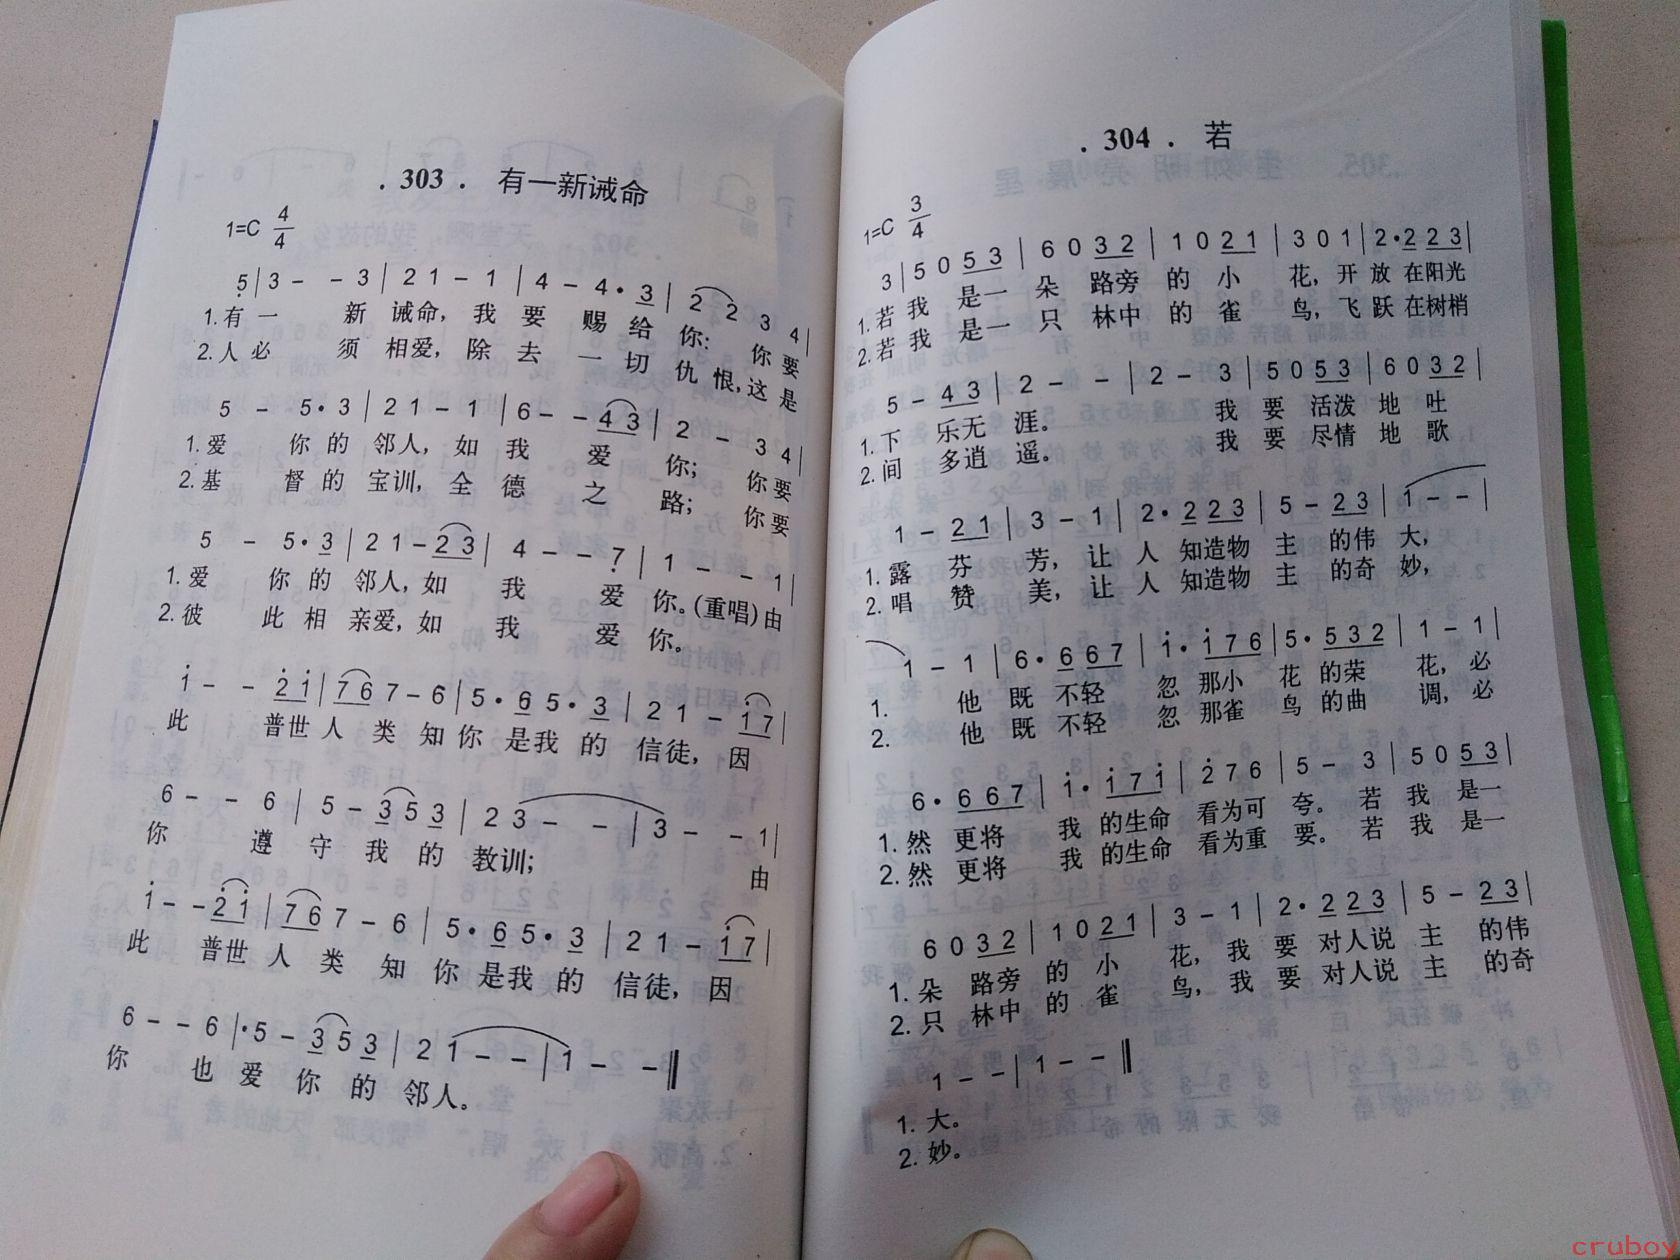 . 303 . 有一新诫命
1=C 4/4
5 | 3 - - 3 | 2 1 - 1 | 4 - 4 · 3 | 2 2 3 4 |
1. 有一 新 诫命, 我 要 赐 给 你: 你 要
2. 人必 须 相爱, 除 去 一 切 仇 恨, 这 是
5 - 5 · 3 | 2 1 - 1 | 6 - - 4 3 | 2 - 3 4 |
1. 爱 你 的 邻人, 如 我 爱 你; 你 要
2. 基 督 的 宝训, 全 德 之 路; 你 要
5 - 5 · 3 | 2 1 - 2 3 | 4 - - 7 | 1 - - 1 |
1. 爱 你 的 邻人, 如 我 爱 你。(重唱) 由
2. 彼 此 相 亲爱, 如 我 爱 你。
i - - 2 i | 7 6 7 - 6 | 5 · 6 5 · 3 | 2 1 - i 7 |
此 普世 人 类 知 你 是我 的 信徒, 因
6 - - 6 | 5 - 3 5 3 | 2 3 - - | 3 - - 1 |
你 遵 守 我 的 教训; 由
i - - 2 i | 7 6 7 - 6 | 5 · 6 5 · 3 | 2 1 - i 7 |
此 普世 人 类 知 你 是我 的 信徒, 因
6 - - 6 | · 5 - 3 5 3 | 2 1 - - | 1 - - ‖
你 也 爱 你 的 邻人。
. 304 . 若
1=C 3/4
3 | 5 0 5 3 | 6 0 3 2 | 1 0 2 1 | 3 0 1 | 2 · 2 2 3 |
1. 若 我 是一 朵 路旁 的 小 花, 开 放 在阳光
2. 若 我 是一 只 林中 的 雀 鸟, 飞 跃 在树梢
5 - 4 3 | 2 - - | 2 - 3 | 5 0 5 3 | 6 0 3 2 |
1. 下 乐无 涯。 我 要 活泼 地 吐
2. 间 多逍 遥。 我 要 尽情 地 歌
1 - 2 1 | 3 - 1 | 2 · 2 2 3 | 5 - 2 3 | 1 - - |
1. 露 芬 芳, 让 人 知造物 主 的伟 大,
2. 唱 赞 美, 让 人 知造物 主 的奇 妙,
1 - 1 | 6 · 6 6 7 | i · i 7 6 | 5 · 5 3 2 | 1 - 1 |
1. 他 既 不轻 忽 那小 花 的荣 花, 必
2. 他 既 不轻 忽 那雀 鸟 的曲 调, 必
6 · 6 6 7 | i · i 7 i | 2 7 6 | 5 - 3 | 5 0 5 3 |
1. 然 更将 我 的生命 看为可 夸。 若 我 是一
2. 然 更将 我 的生命 看为重 要。 若 我 是一
6 0 3 2 | 1 0 2 1 | 3 - 1 | 2 · 2 2 3 | 5 - 2 3 |
1. 朵 路旁 的 小 花, 我 要 对人说 主 的伟
2. 只 林中 的 雀 鸟, 我 要 对人说 主 的奇
1 - - | 1 - - ‖
1. 大。
2. 妙。
cruboy